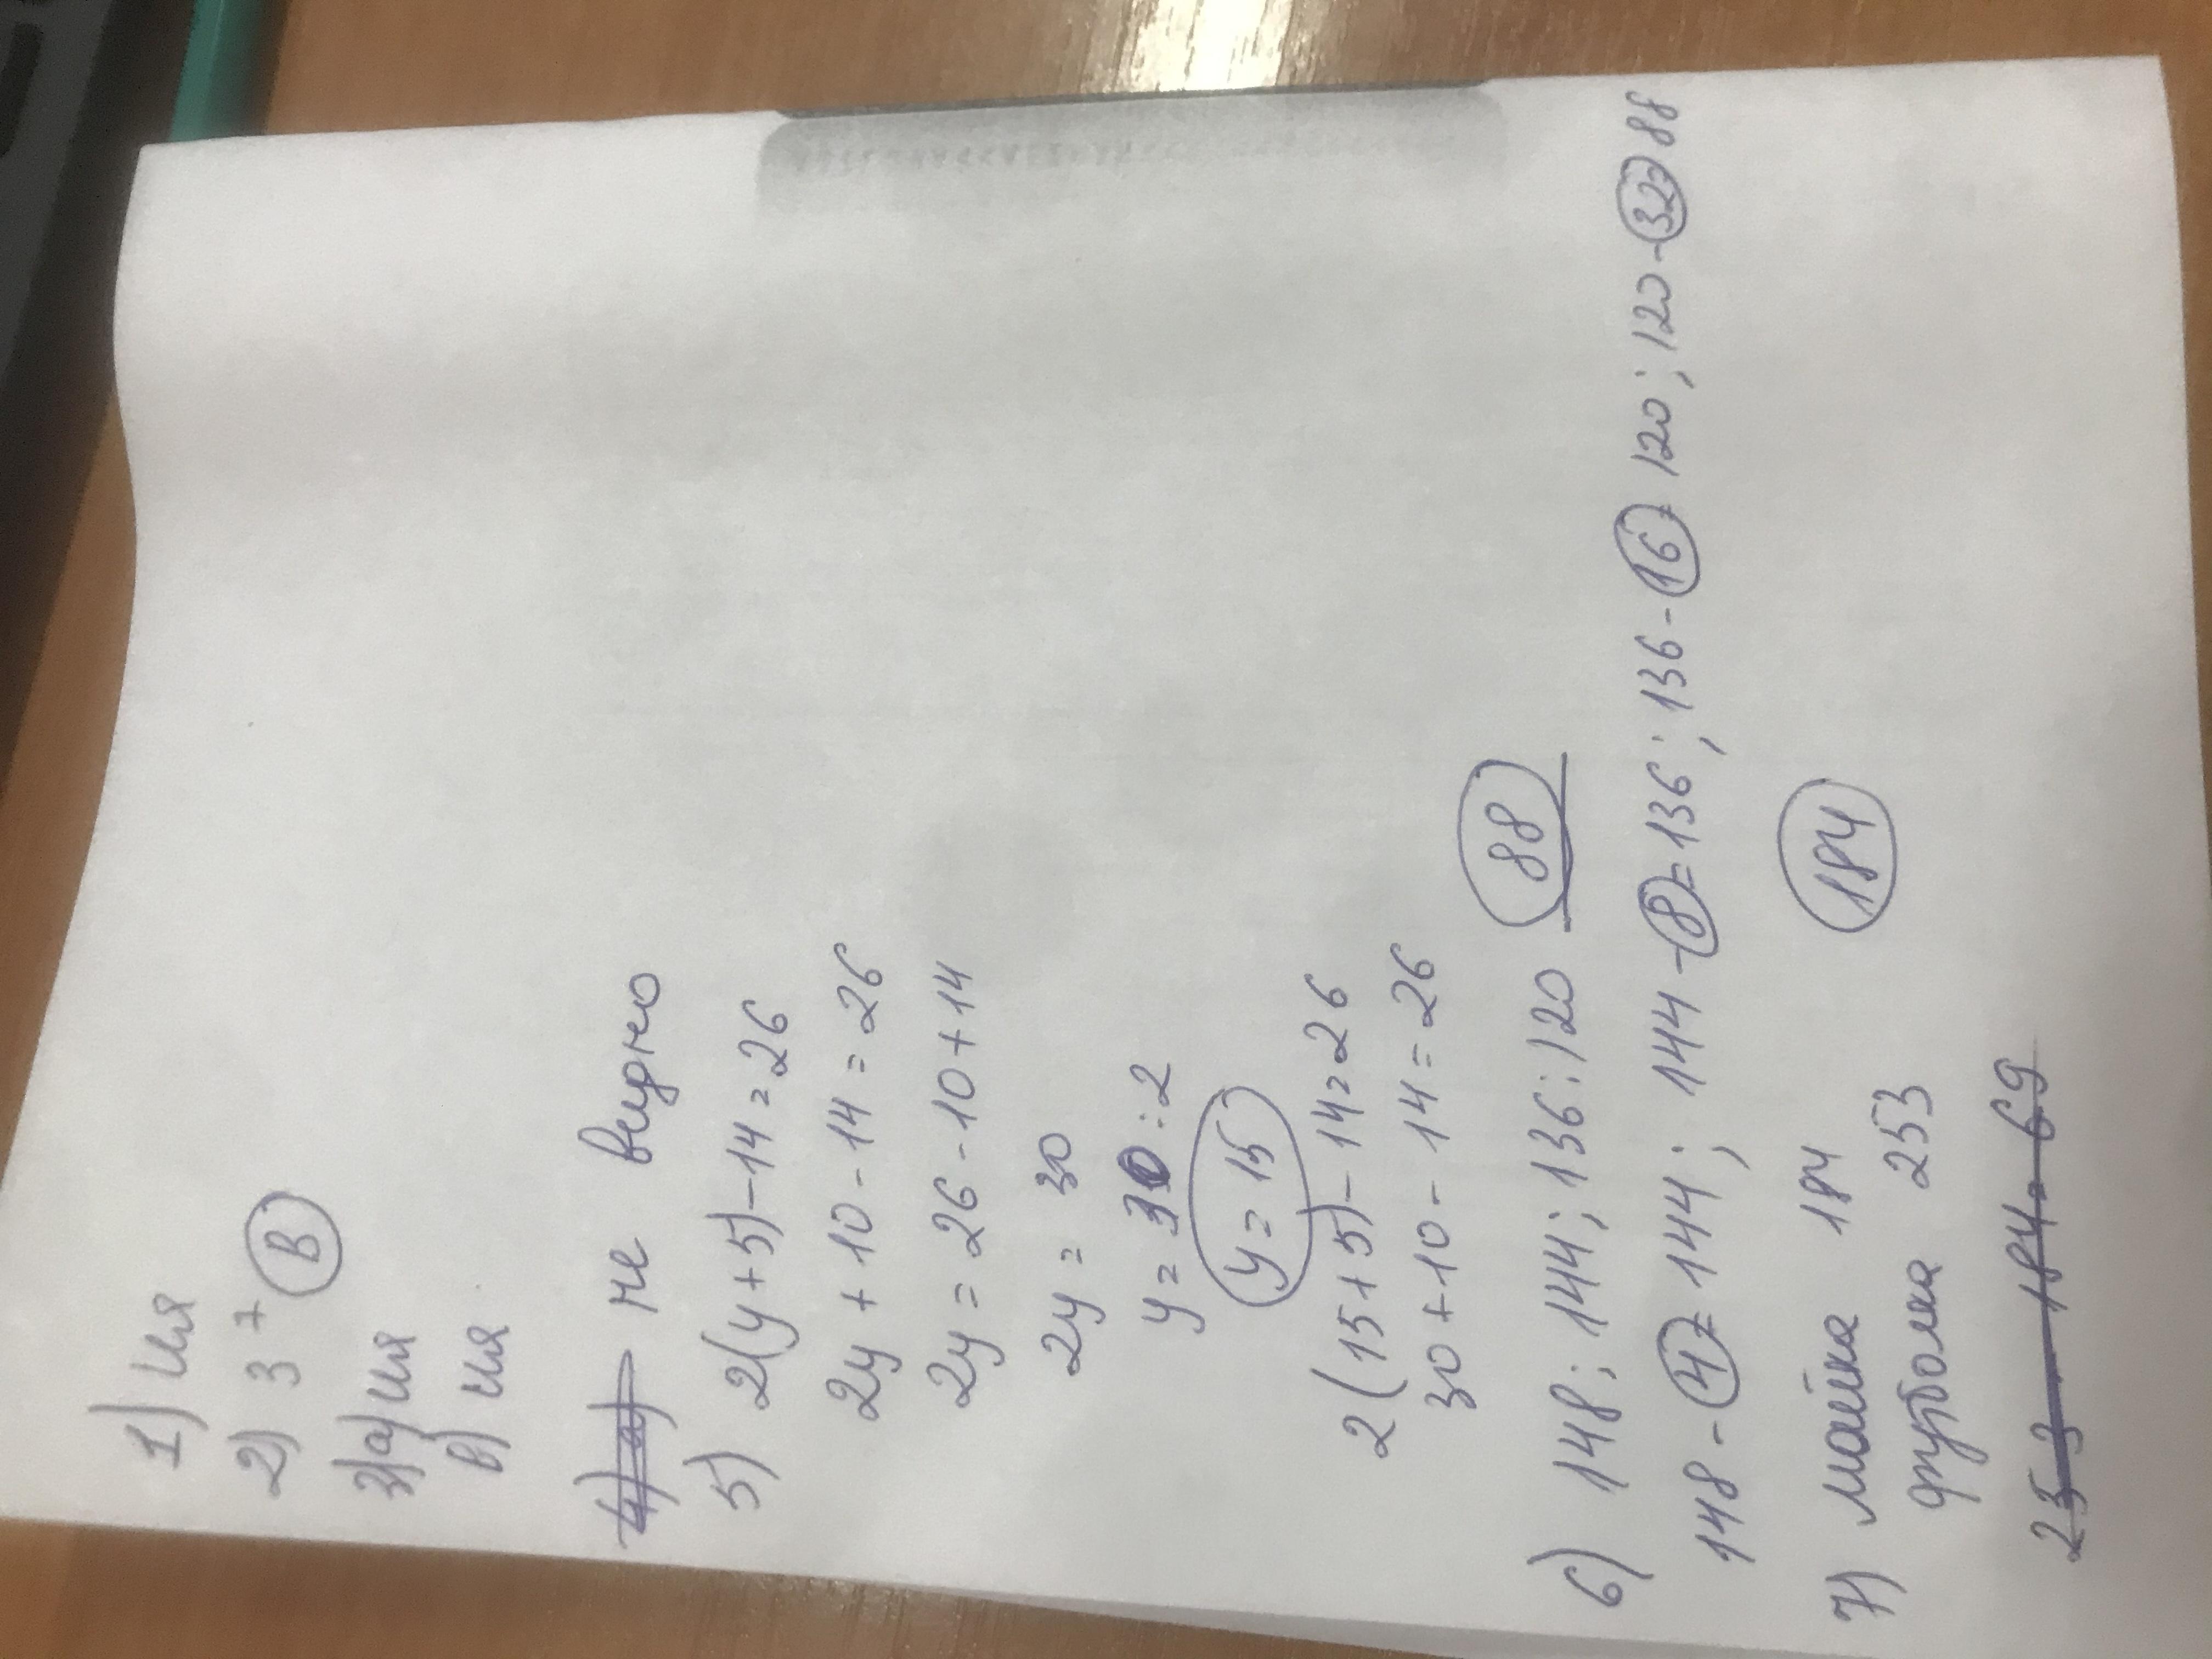 1) ия
2) 3⁷ В
3) а) ия
в) ия
4) а) не видно
5) 2(y+5)-14=26
2y+10-14=26
2y=26-10+14
2y=30
y=30:2
y=15
2(15+5)-14=26
30+10-14=26
6) 148; 144; 136; 120 88
148-4=144; 144-8=136; 136-16=120; 120-32=88
7) майка 184 184
футболка 253
253-184=69